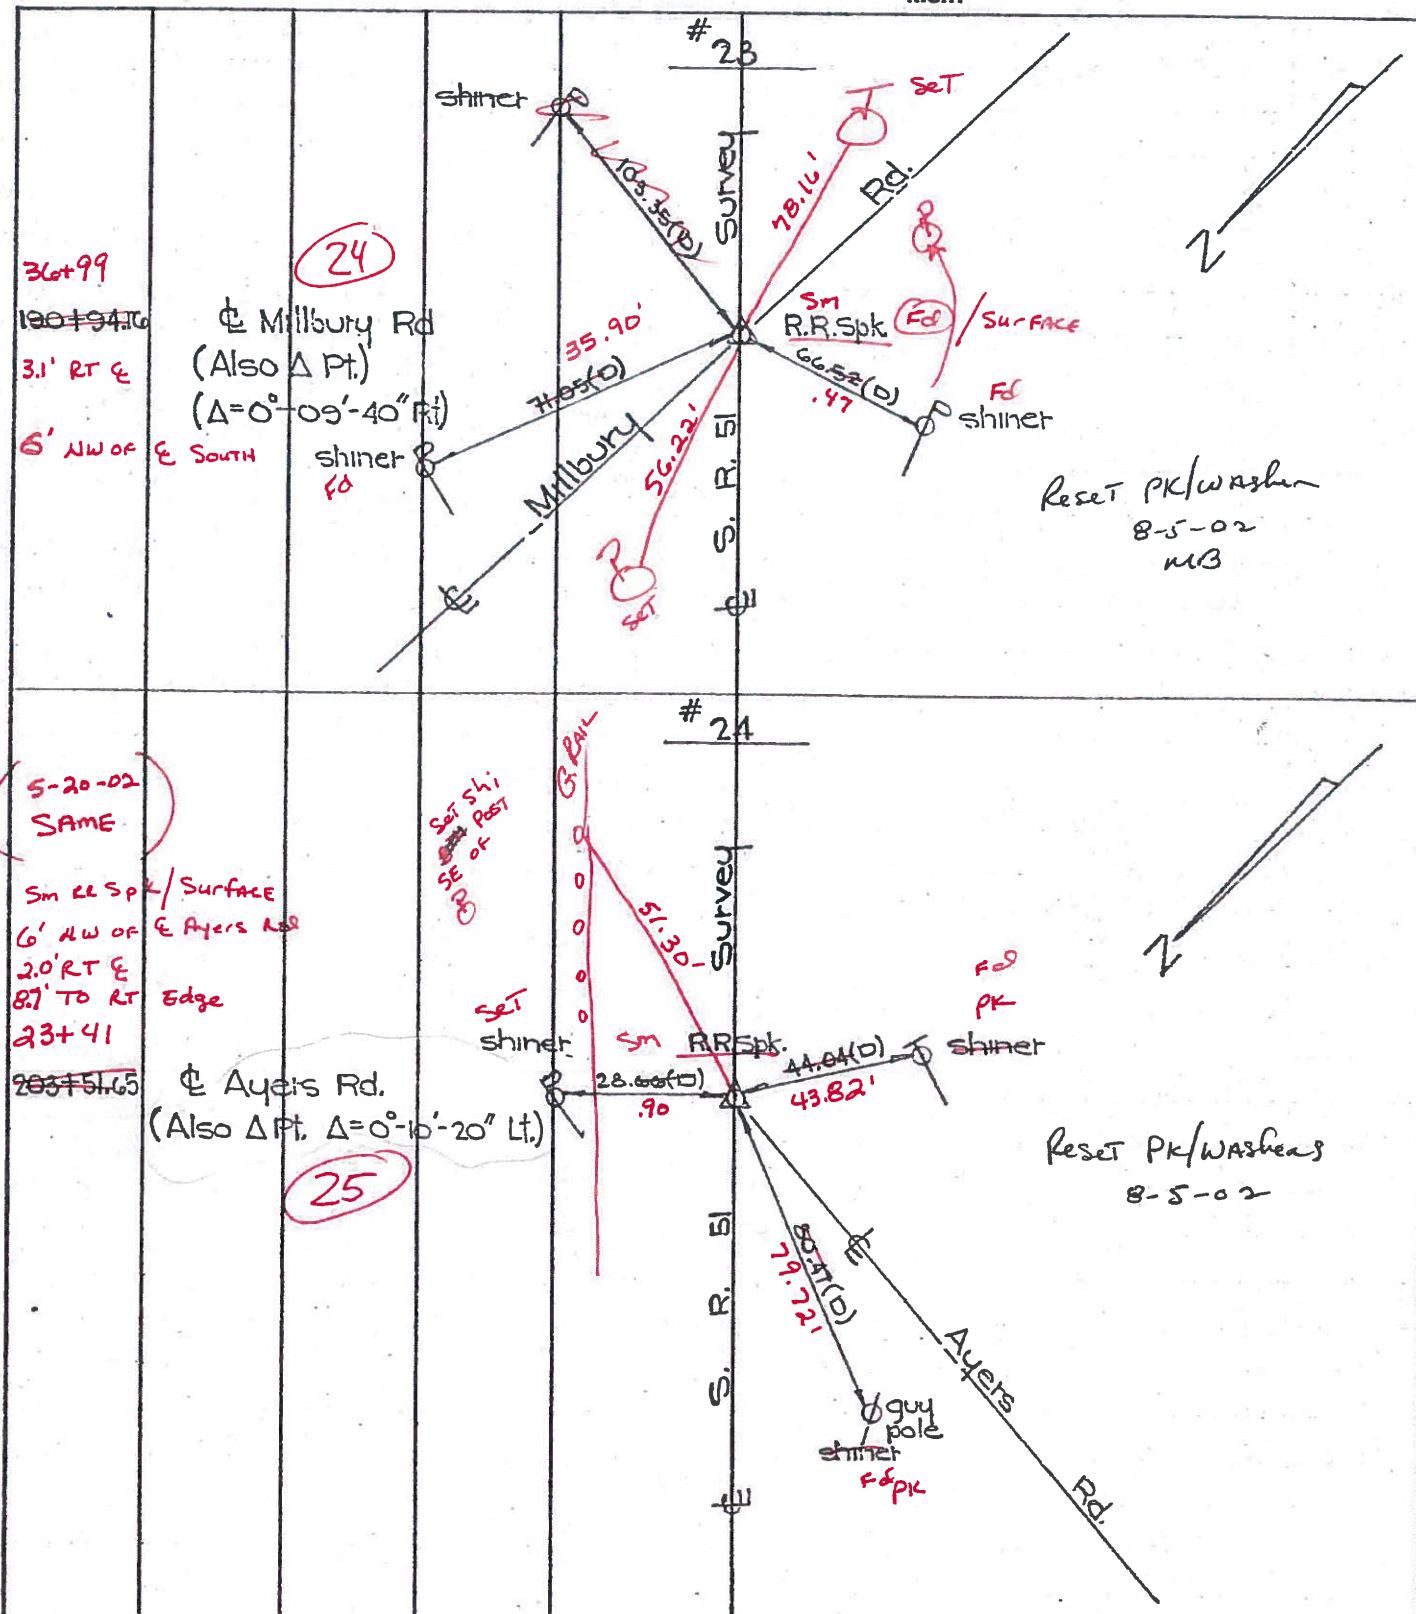 # 23
shiner
SeT
103.35(D)
78.16'
Survey
Rd.
24
36+99
190+94.76
℄ Millbury Rd
(Also Δ Pt.)
(Δ=0°-09'-40" Rt)
3.1' RT ℄
6' NW OF ℄ South
35.90'
71.05(D)
Sm
R.R.Spk. Fd / SURFACE
66.52(D)
.47
Fd
shiner
shiner
Fd
Millbury
56.22'
S. R. 51
SeT
℄
℄
N
Reset PK/Washer
8-5-02
MB
# 24
G.RAIL
5-20-02
SAME
SeT Shi
POST
SE OF
Sm RR Spk/Surface
6' NW OF ℄ Ayers Rd
2.0' RT ℄
8.7' TO RT Edge
23+41
203+51.65
℄ Ayers Rd.
(Also Δ Pt. Δ=0°-10'-20" Lt.)
25
51.30
Survey
SeT
shiner
Sm R.R.Spk.
28.66(D)
.90
44.04(D)
43.82'
Fd
PK
shiner
N
Reset PK/Washers
8-5-02
S. R. 51
80.47(D)
79.72'
℄
Ayers
Rd.
guy
pole
shiner
Fd PK
℄